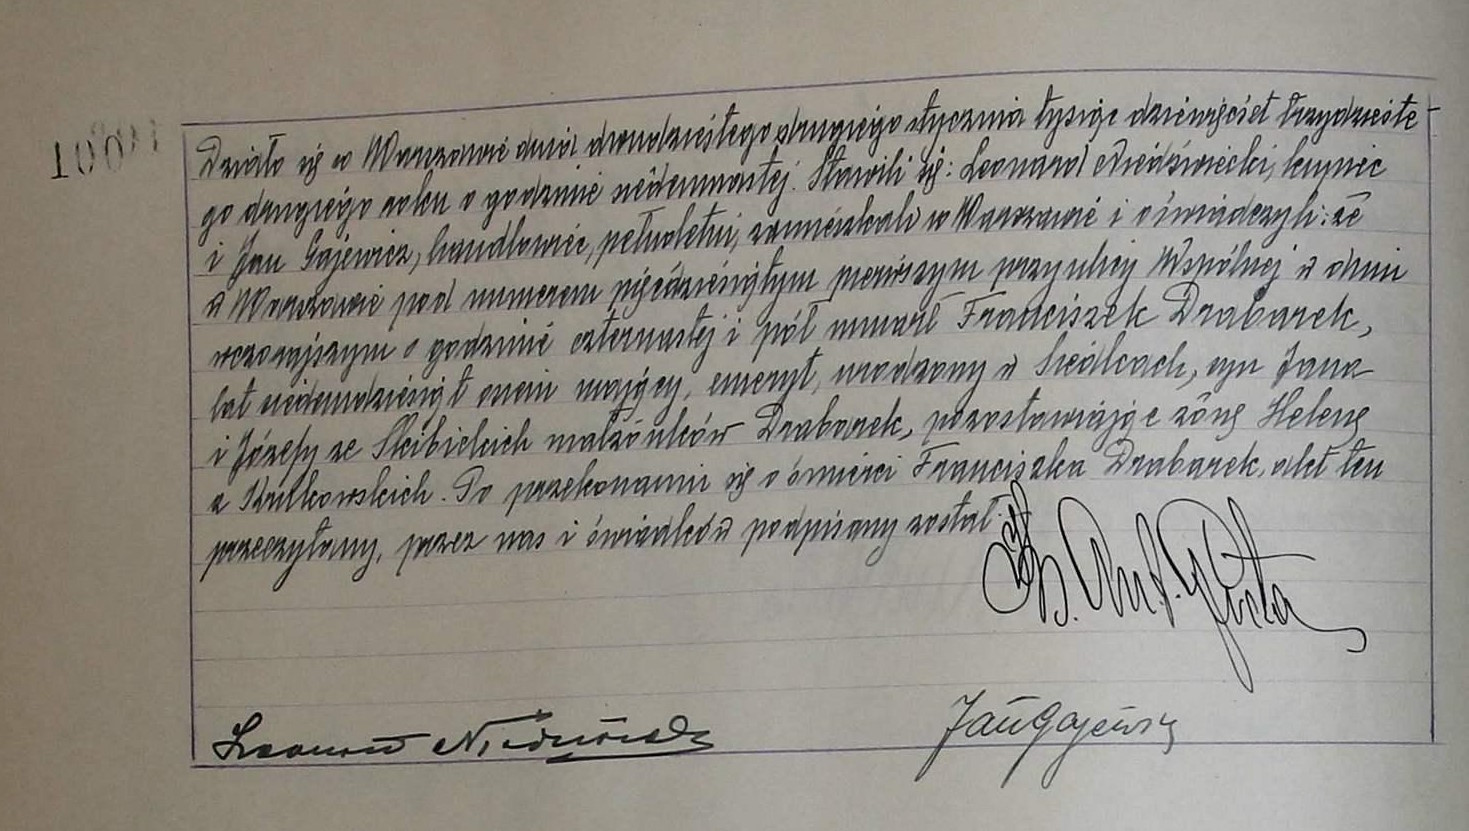 Działo się w Warszawie dnia dwudziestego drugiego stycznia tysiąc dziewięćset trzydzieste-
go drugiego roku o godzinie siedemnastej. Stawili się: Leonard Niedźwiecki, kupiec
i Jan Gajewicz, handlowiec, pełnoletni, zamieszkali w Warszawie i oświadczyli: że
w Warszawie pod numerem pięćdziesiątym pierwszym przy ulicy Wspólnej w dniu
wczorajszym o godzinie czternastej i pół umarł Franciszek Drabarek,
lat siedemdziesiąt osiem mający, emeryt, urodzony w Siedlcach, syn Jana
i Józefy ze Skibickich małżonków Drabarek, pozostawiając żonę Helenę
z Kutkowskich. Po przekonaniu się o śmierci Franciszka Drabarek, akt ten
przeczytany, przez nas i świadków podpisany został.
Leonard Niedźwiecki
Jan Gajewicz